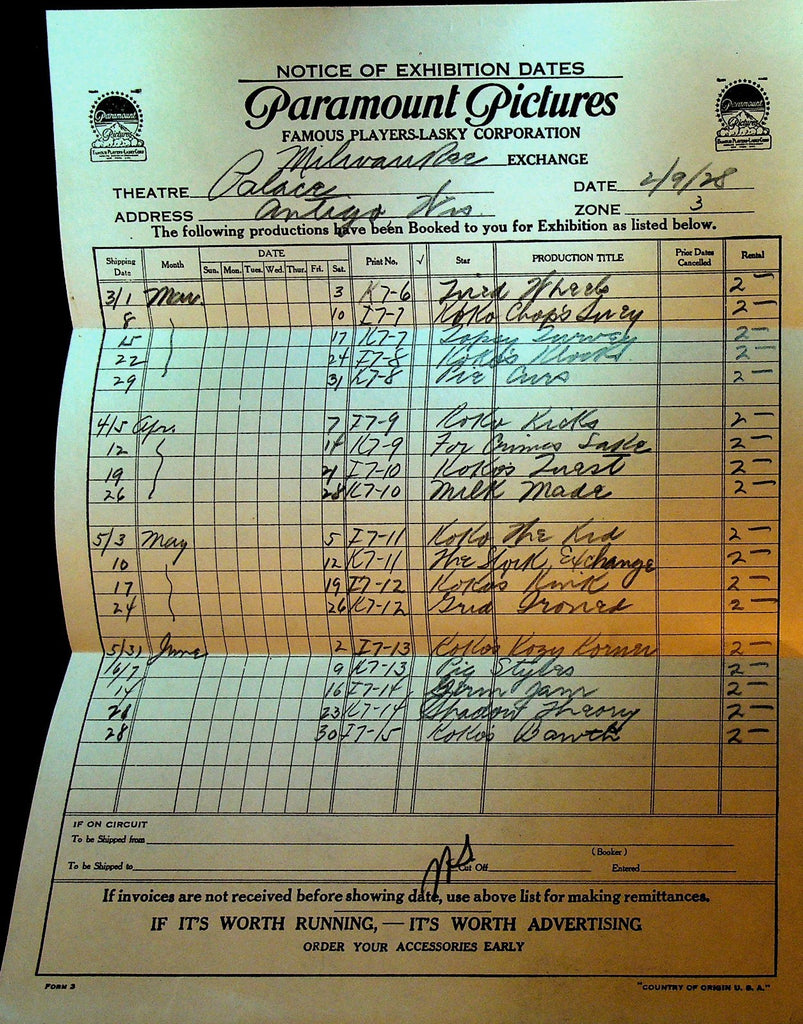 NOTICE OF EXHIBITION DATES
Paramount Pictures
FAMOUS PLAYERS-LASKY CORPORATION
Milwaukee EXCHANGE
THEATRE Palace DATE 2/9/28
ADDRESS Antigo, Wis. ZONE 3
The following productions have been Booked to you for Exhibition as listed below.
Shipping Date Month DATE Sun. Mon. Tues. Wed. Thur. Fri. Sat. Print No. √ Star PRODUCTION TITLE Prior Dates Cancelled Rental
3/1 Mar. 3 K7-6 Tired Wheels 2 —
8 10 I7-7 KoKo Chops Suey 2 —
15 17 K7-7 Topsy Turvey 2 —
22 24 I7-8 KoKos Klocks 2 —
29 31 K7-8 Pie Curs 2 —
4/5 Apr. 7 I7-9 KoKo Kicks 2 —
12 14 K7-9 For Crimes Sake 2 —
19 21 I7-10 KoKos Quest 2 —
26 28 K7-10 Milk Made 2 —
5/3 May 5 I7-11 KoKo The Kid 2 —
10 12 K7-11 The Stork Exchange 2 —
17 19 I7-12 KoKos Kink 2 —
24 26 K7-12 Grid Ironed 2 —
5/31 June 2 I7-13 KoKos Kozy Korner 2 —
6/7 9 K7-13 Pig Styles 2 —
14 16 I7-14 Germ Jam 2 —
21 23 K7-14 Shadow Theory 2 —
28 30 I7-15 KoKos Bawth 2 —
IF ON CIRCUIT
To be Shipped from
(Booker)
To be Shipped to Cut Off Entered
If invoices are not received before showing date, use above list for making remittances.
IF IT'S WORTH RUNNING, — IT'S WORTH ADVERTISING
ORDER YOUR ACCESSORIES EARLY
FORM 3 "COUNTRY OF ORIGIN U. S. A."